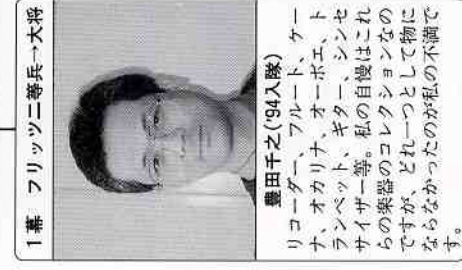 1幕 フリッツ二等兵→大将
豊田千之('94入隊)
リコーダー、フルート、ケー
ナ、オカリナ、オーボエ、ト
ランペット、ギター、シンセ
サイザー等。私の自慢はこれ
らの楽器のコレクションなの
ですが、どれ一つとして物に
ならなかったのが私の不満で
す。